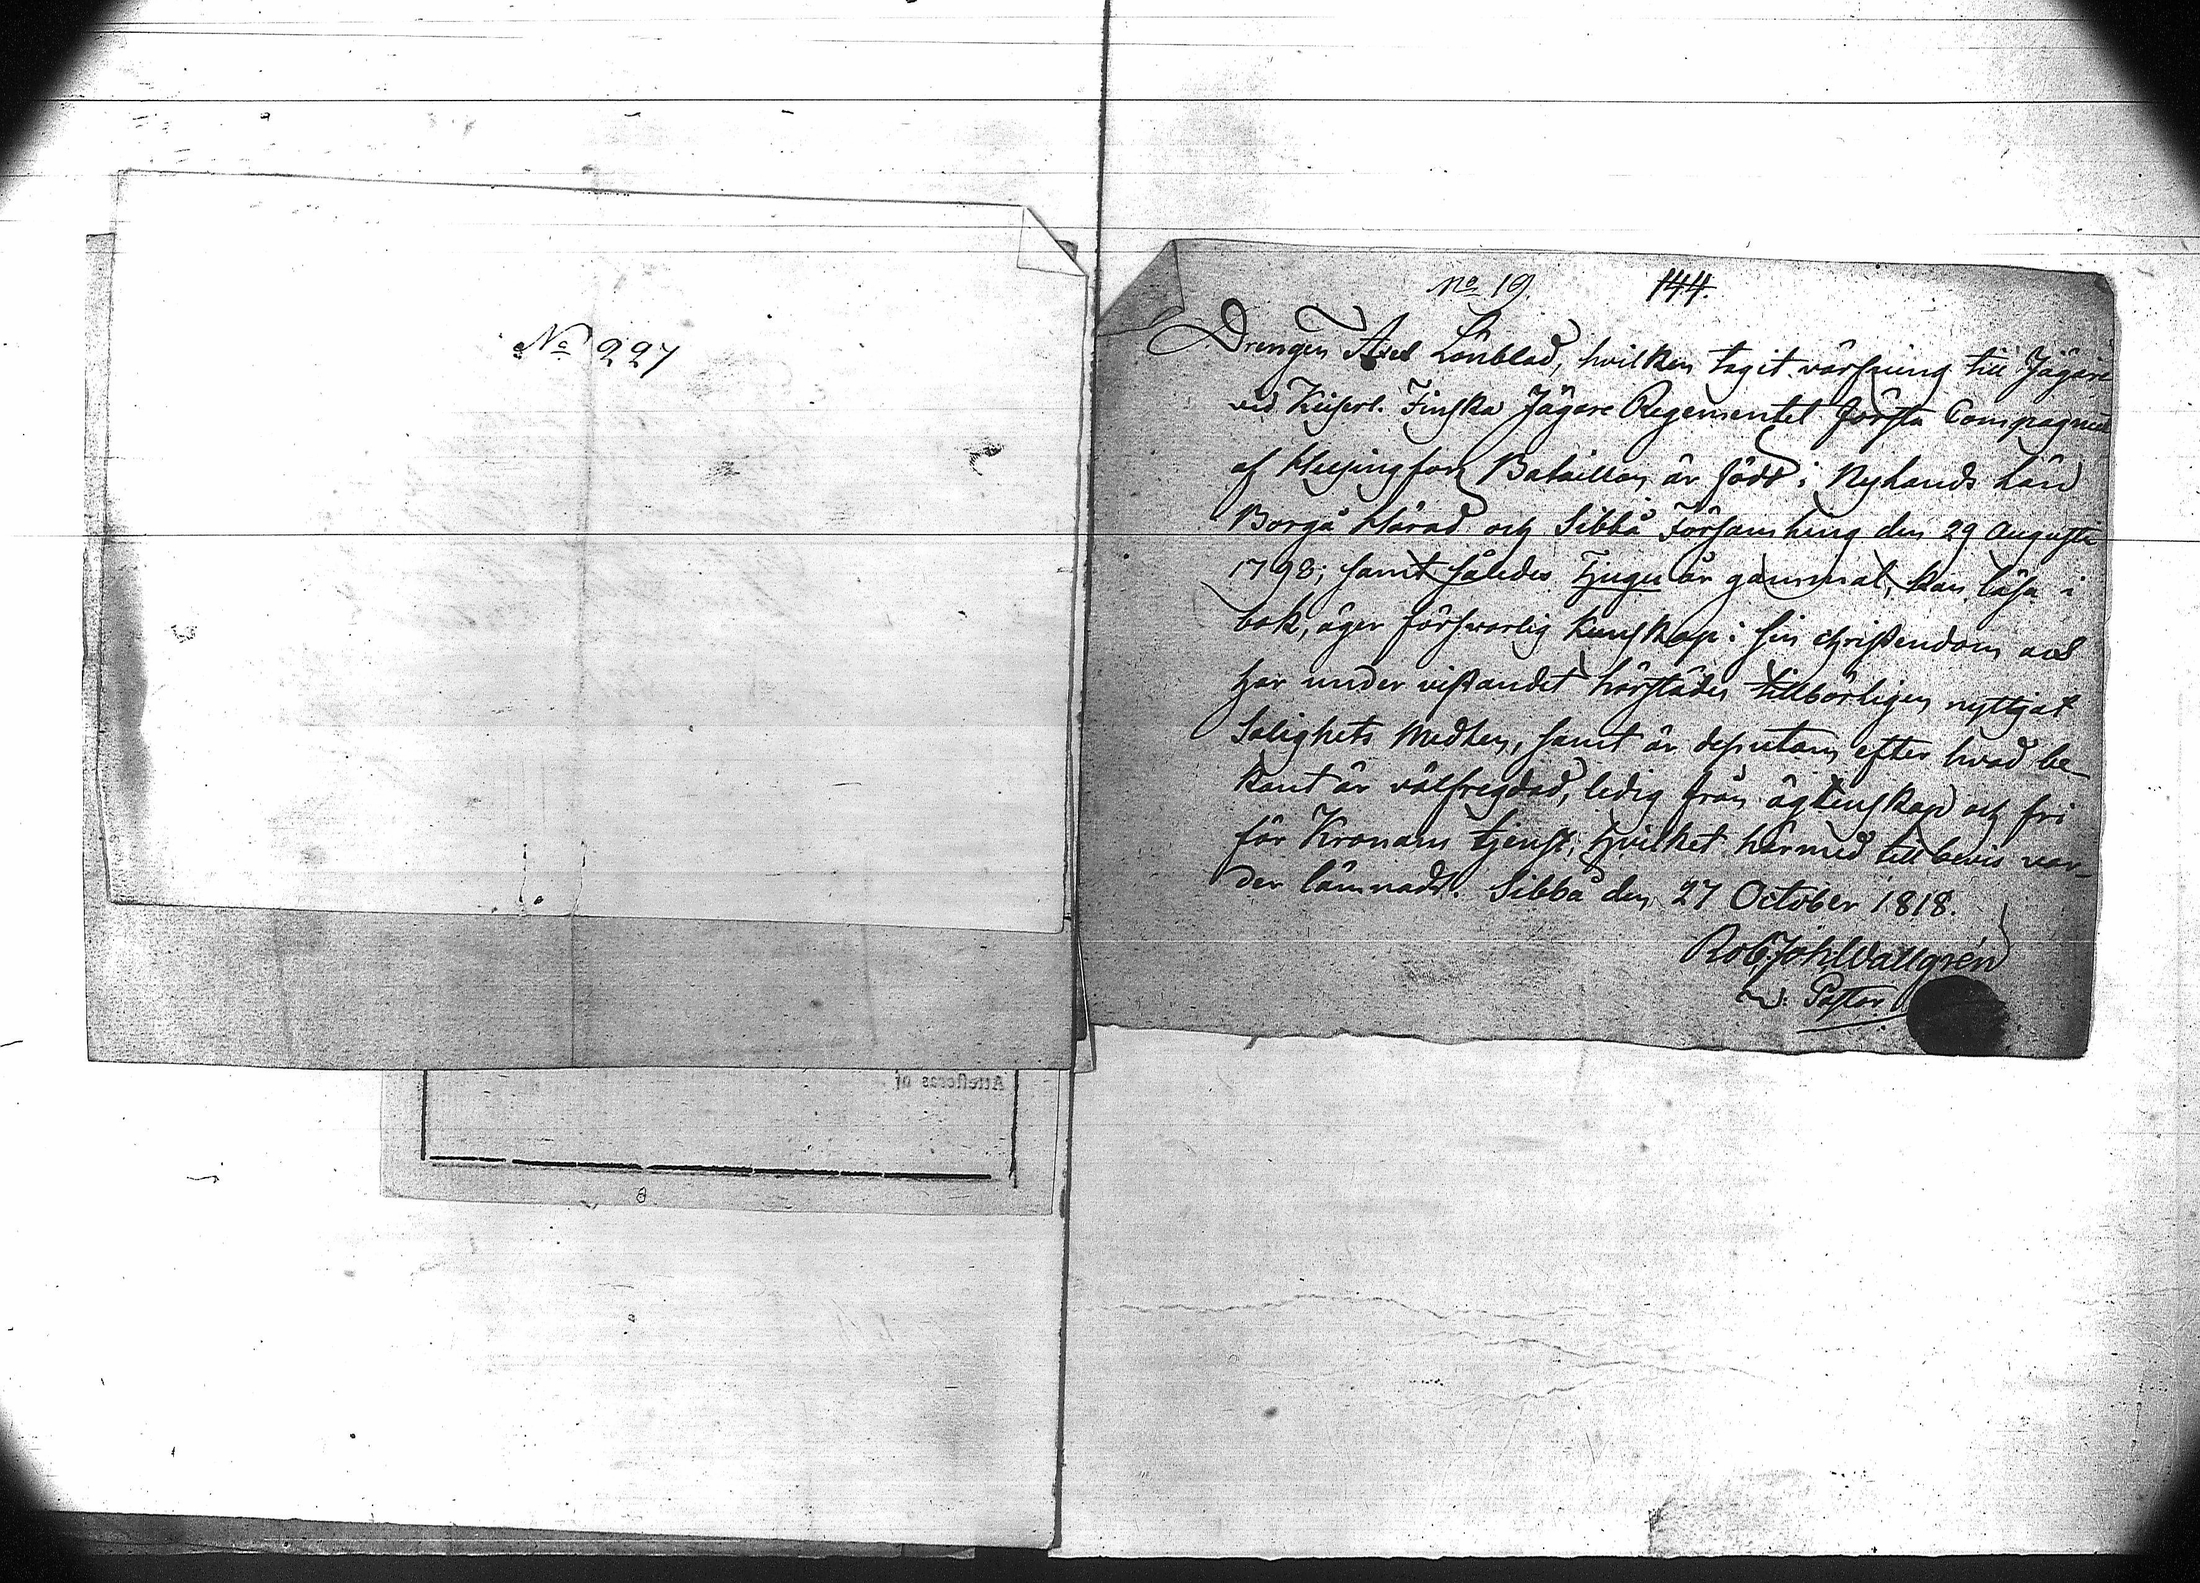 No 227
Attesteras af
No 19. 144.
Drengen Axel Lönblad, hvilken tagit värfning till Jägare
vid Keiserl. Finska Jägare Regementet första Compagniet
af Helsingfors Bataillon är född i Nylands Län
Borgå Härad och Sibbå Församling den 29 Augusti
1798; samt således Tjugu år gammal, kan läsa i
bok, äger försvarlig kunskap i sin christendom och
har under vistandet härstädes tillbörligen nyttjat
Salighets Medlen, samt är dessutom efter hvad be-
kant är välfregdad, ledig från ägtenskap och fri
för Kronans tjenst; hvilket härmed till bevis var-
der lämnadt. Sibbå den 27 October 1818.
Rob. Joh. Wallgrén
v. Pastor